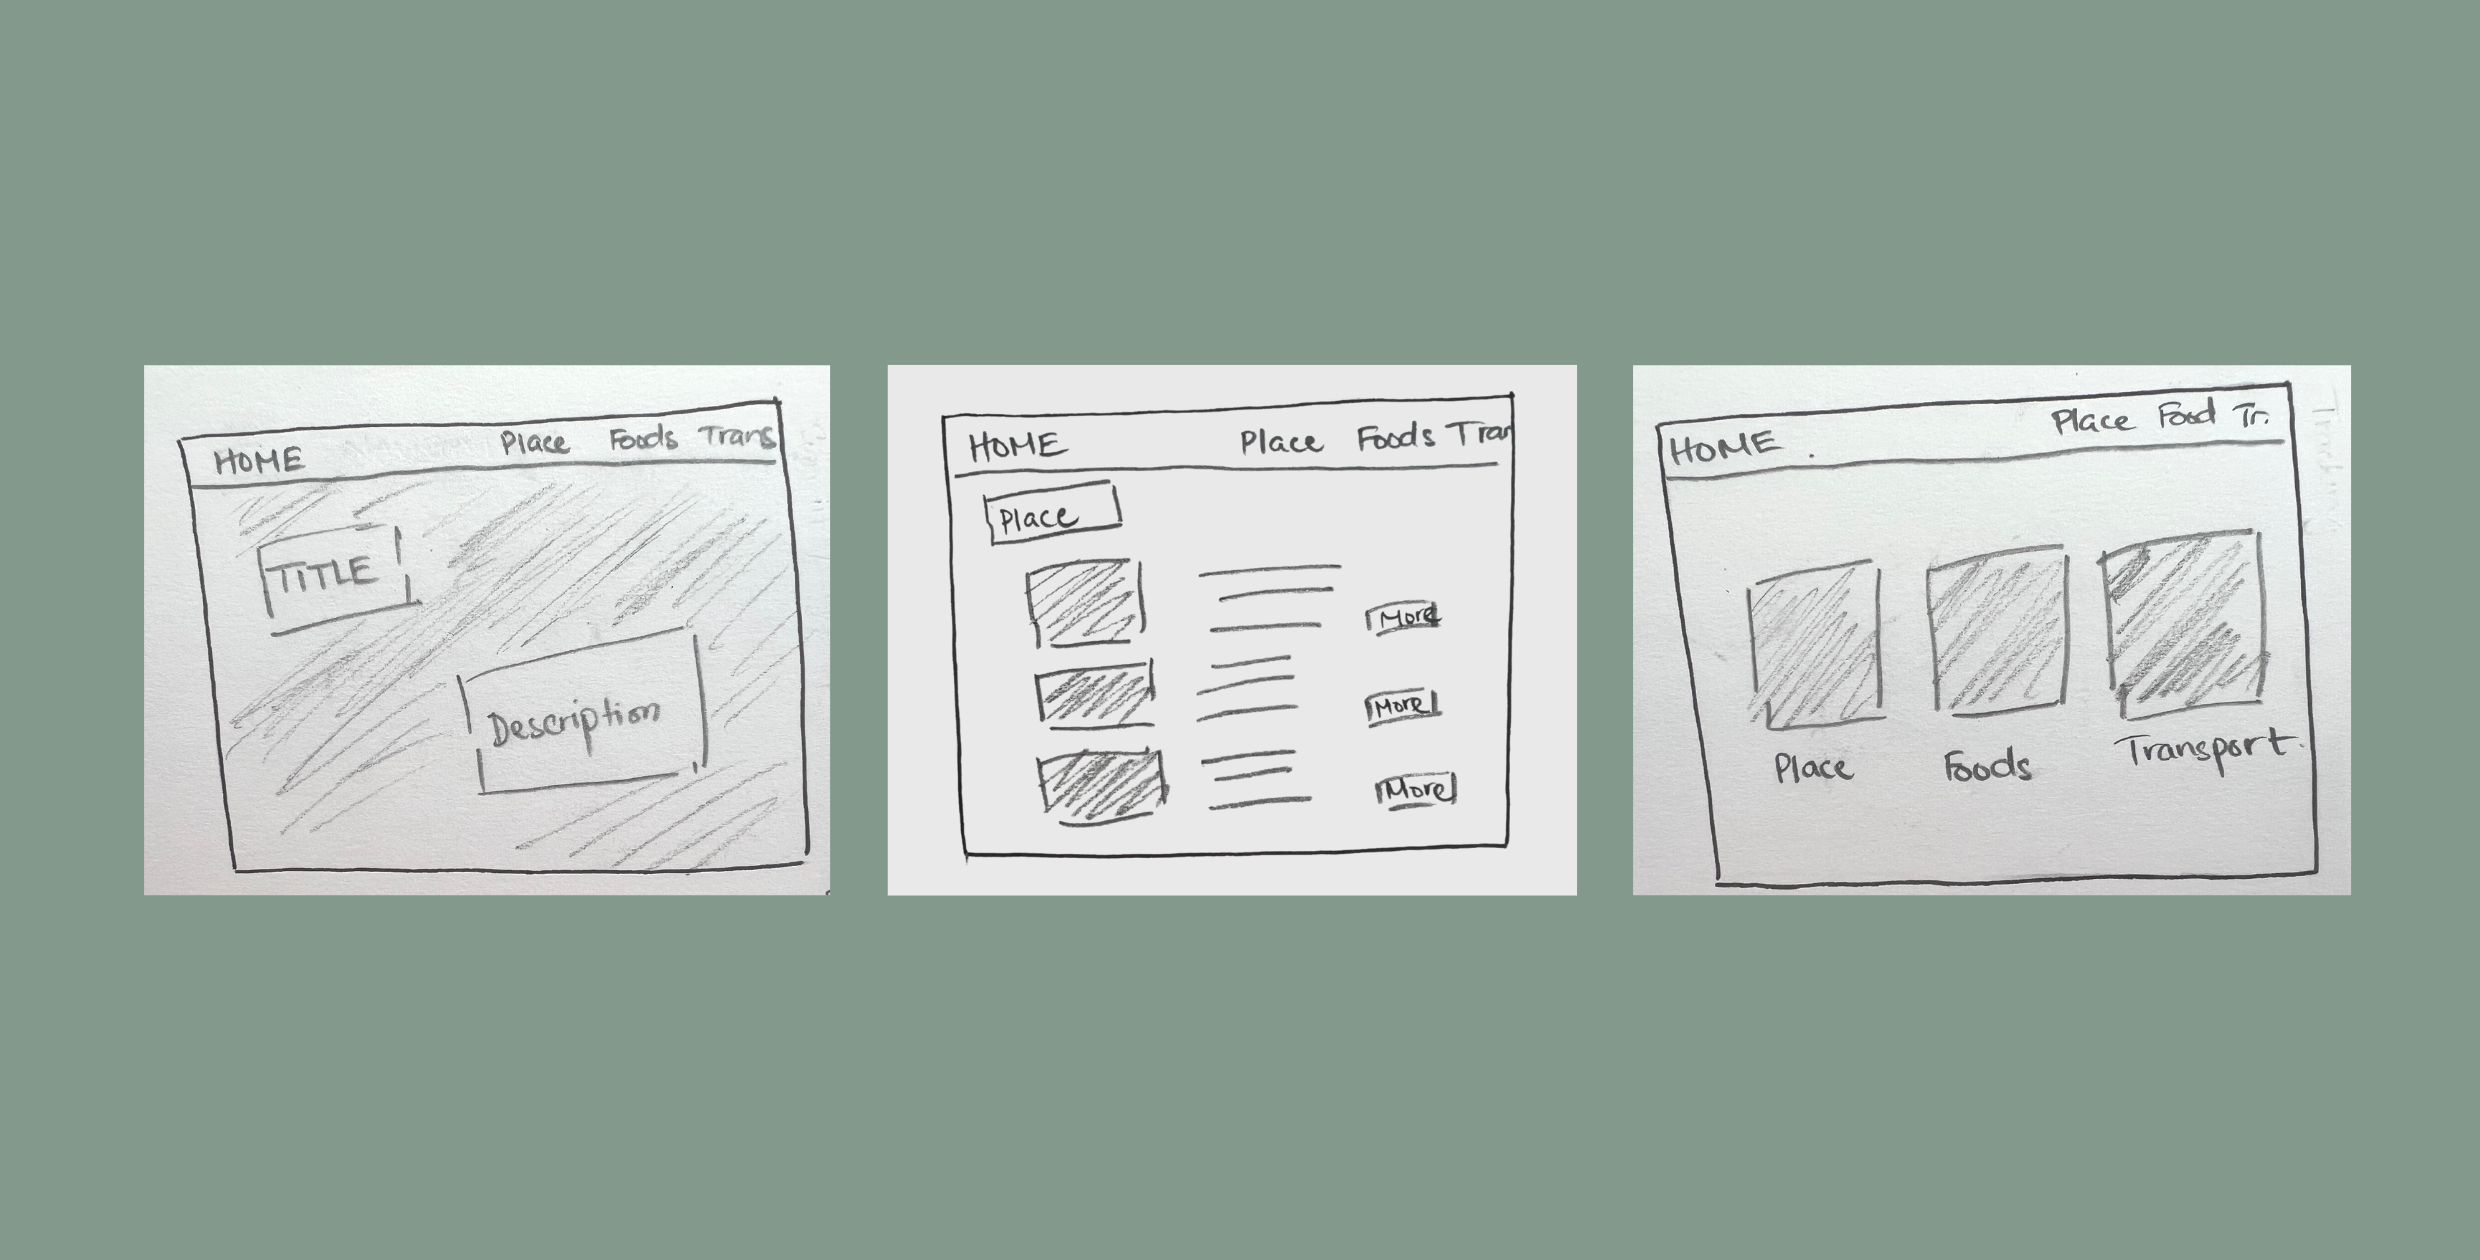 HOME Place Foods Trans
TITLE
Description
HOME Place Foods Tran
Place
More
More
More
HOME Place Food Tr.
Place Foods Transport.